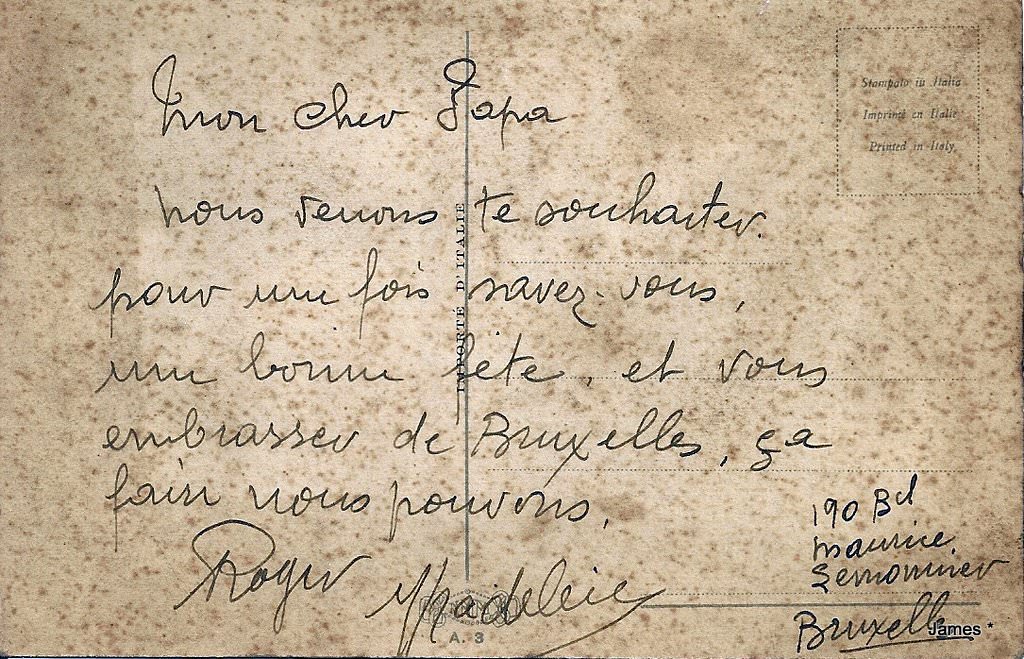 Mon cher Papa
nous venons te souhaiter.
pour une fois savez-vous,
une bonne fête, et vous
embrasser de Bruxelles, ça
fair nous pouvons.
Roger Madeleine
190 Bd
Maurice
Lemonnier
Bruxelles
Stampato in Italia
Imprimé en Italie
Printed in Italy.
IMPORTÉ D'ITALIE
A. 3
James *